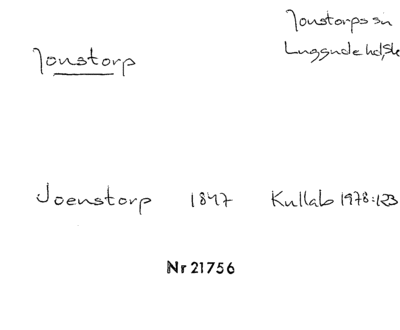 Jonstorps sn
Jonstorp
Luggude hd, Sk
Joenstorp 1847 Kullab 1978:123
Nr 21756